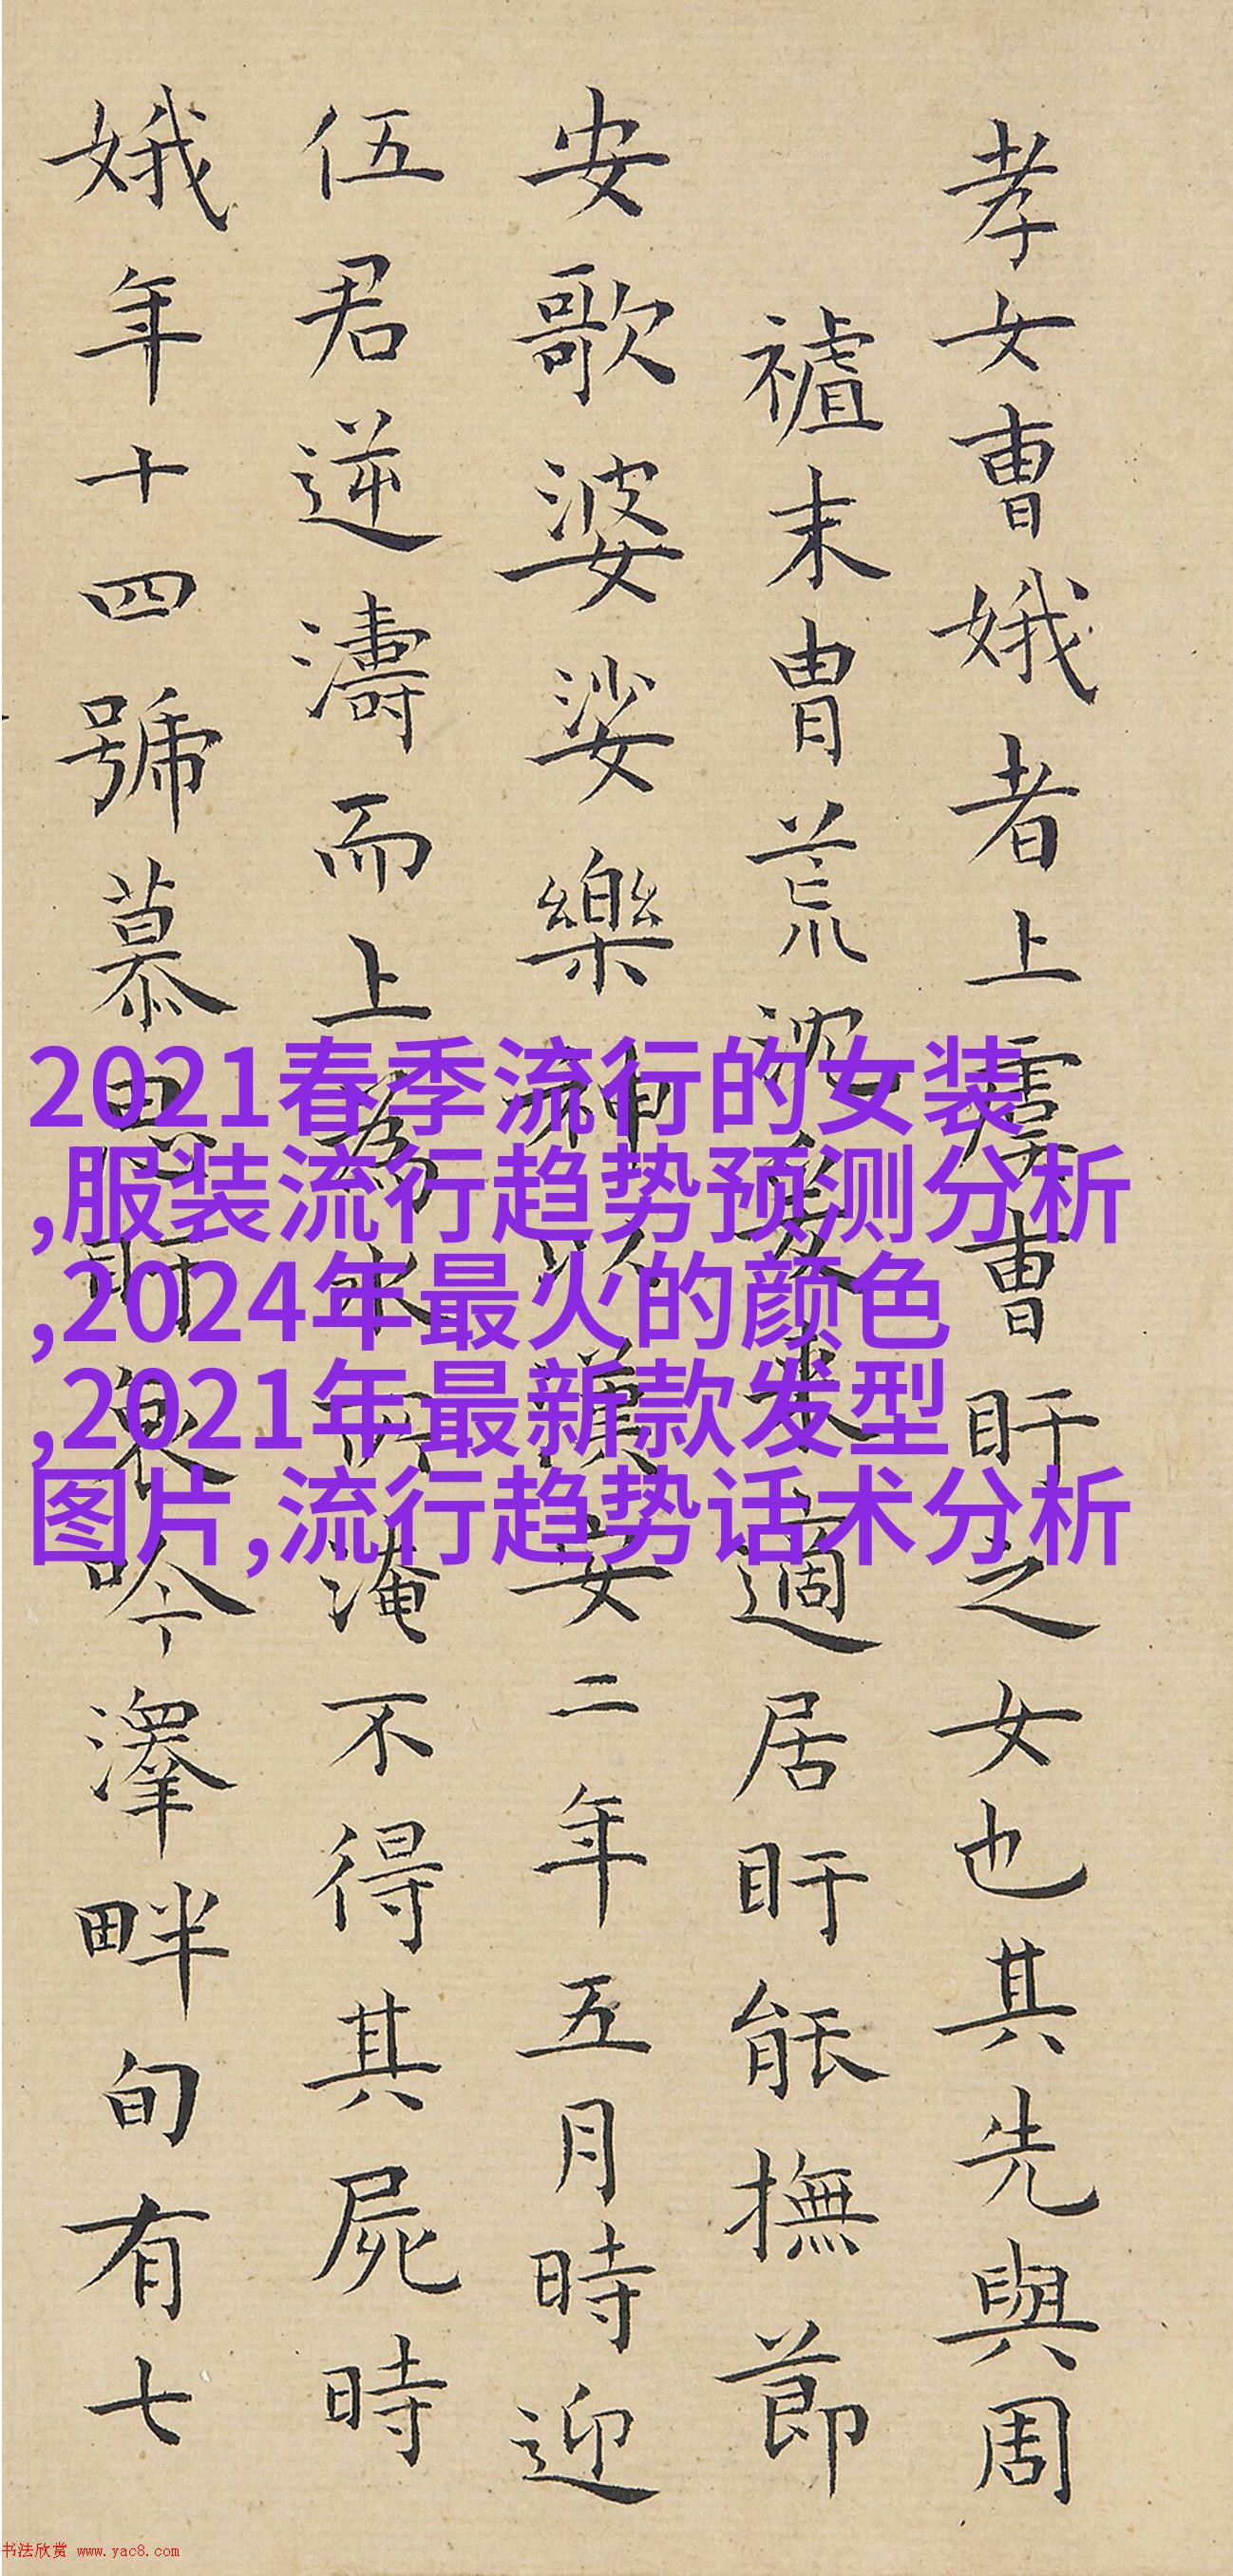 孝女曹娥者上虞曹盱之女也其先與周
末胄荒沈爰来適居盱能撫節
安歌婆娑樂神以漢安二年五月時迎
伍君逆濤而上為水所淹不得其屍時
娥年十四號慕思盱哀吟澤畔旬有七
2021春季流行的女装
,服装流行趋势预测分析
,2024年最火的颜色
,2021年最新款发型
图片,流行趋势话术分析
书法欣赏 www.yac8.com